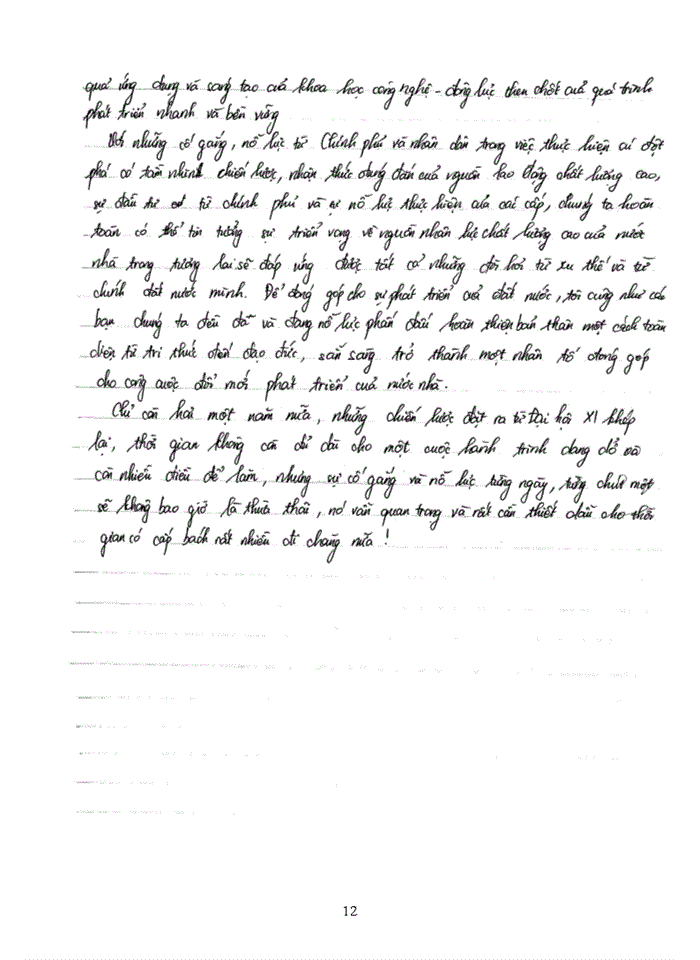 quả ứng dụng và sáng tạo của khoa học công nghệ - động lực then chốt của quá trình
phát triển nhanh và bền vững
Với những cố gắng, nỗ lực từ Chính phủ và nhân dân trong việc thực hiện cú đột
phá có tầm nhìn chiến lược, nhận thức đúng đắn của nguồn lao động chất lượng cao,
sự đầu tư từ chính phủ và sự nỗ lực thực hiện của các cấp, chúng ta hoàn
toàn có thể tin tưởng sự triển vọng về nguồn nhân lực chất lượng cao của nước
nhà trong tương lai sẽ đáp ứng được tất cả những đòi hỏi từ xu thế và từ
chính đất nước mình. Để đóng góp cho sự phát triển của đất nước, tôi cũng như các
bạn chúng ta đều đã và đang nỗ lực phấn đấu hoàn thiện bản thân một cách toàn
diện từ tri thức đến đạo đức, sẵn sàng trở thành một nhân tố đóng góp
cho công cuộc đổi mới phát triển của nước nhà.
Chỉ còn hai một năm nữa, những chiến lược đặt ra từ Đại hội XI khép
lại, thời gian không còn đủ dài cho một cuộc hành trình dang dở và
còn nhiều điều để làm, nhưng sự cố gắng và nỗ lực từng ngày, từng chút một
sẽ không bao giờ là thừa thãi, nó vẫn quan trọng và rất cần thiết dẫu cho thời
gian có cấp bách rất nhiều đi chăng nữa!
12